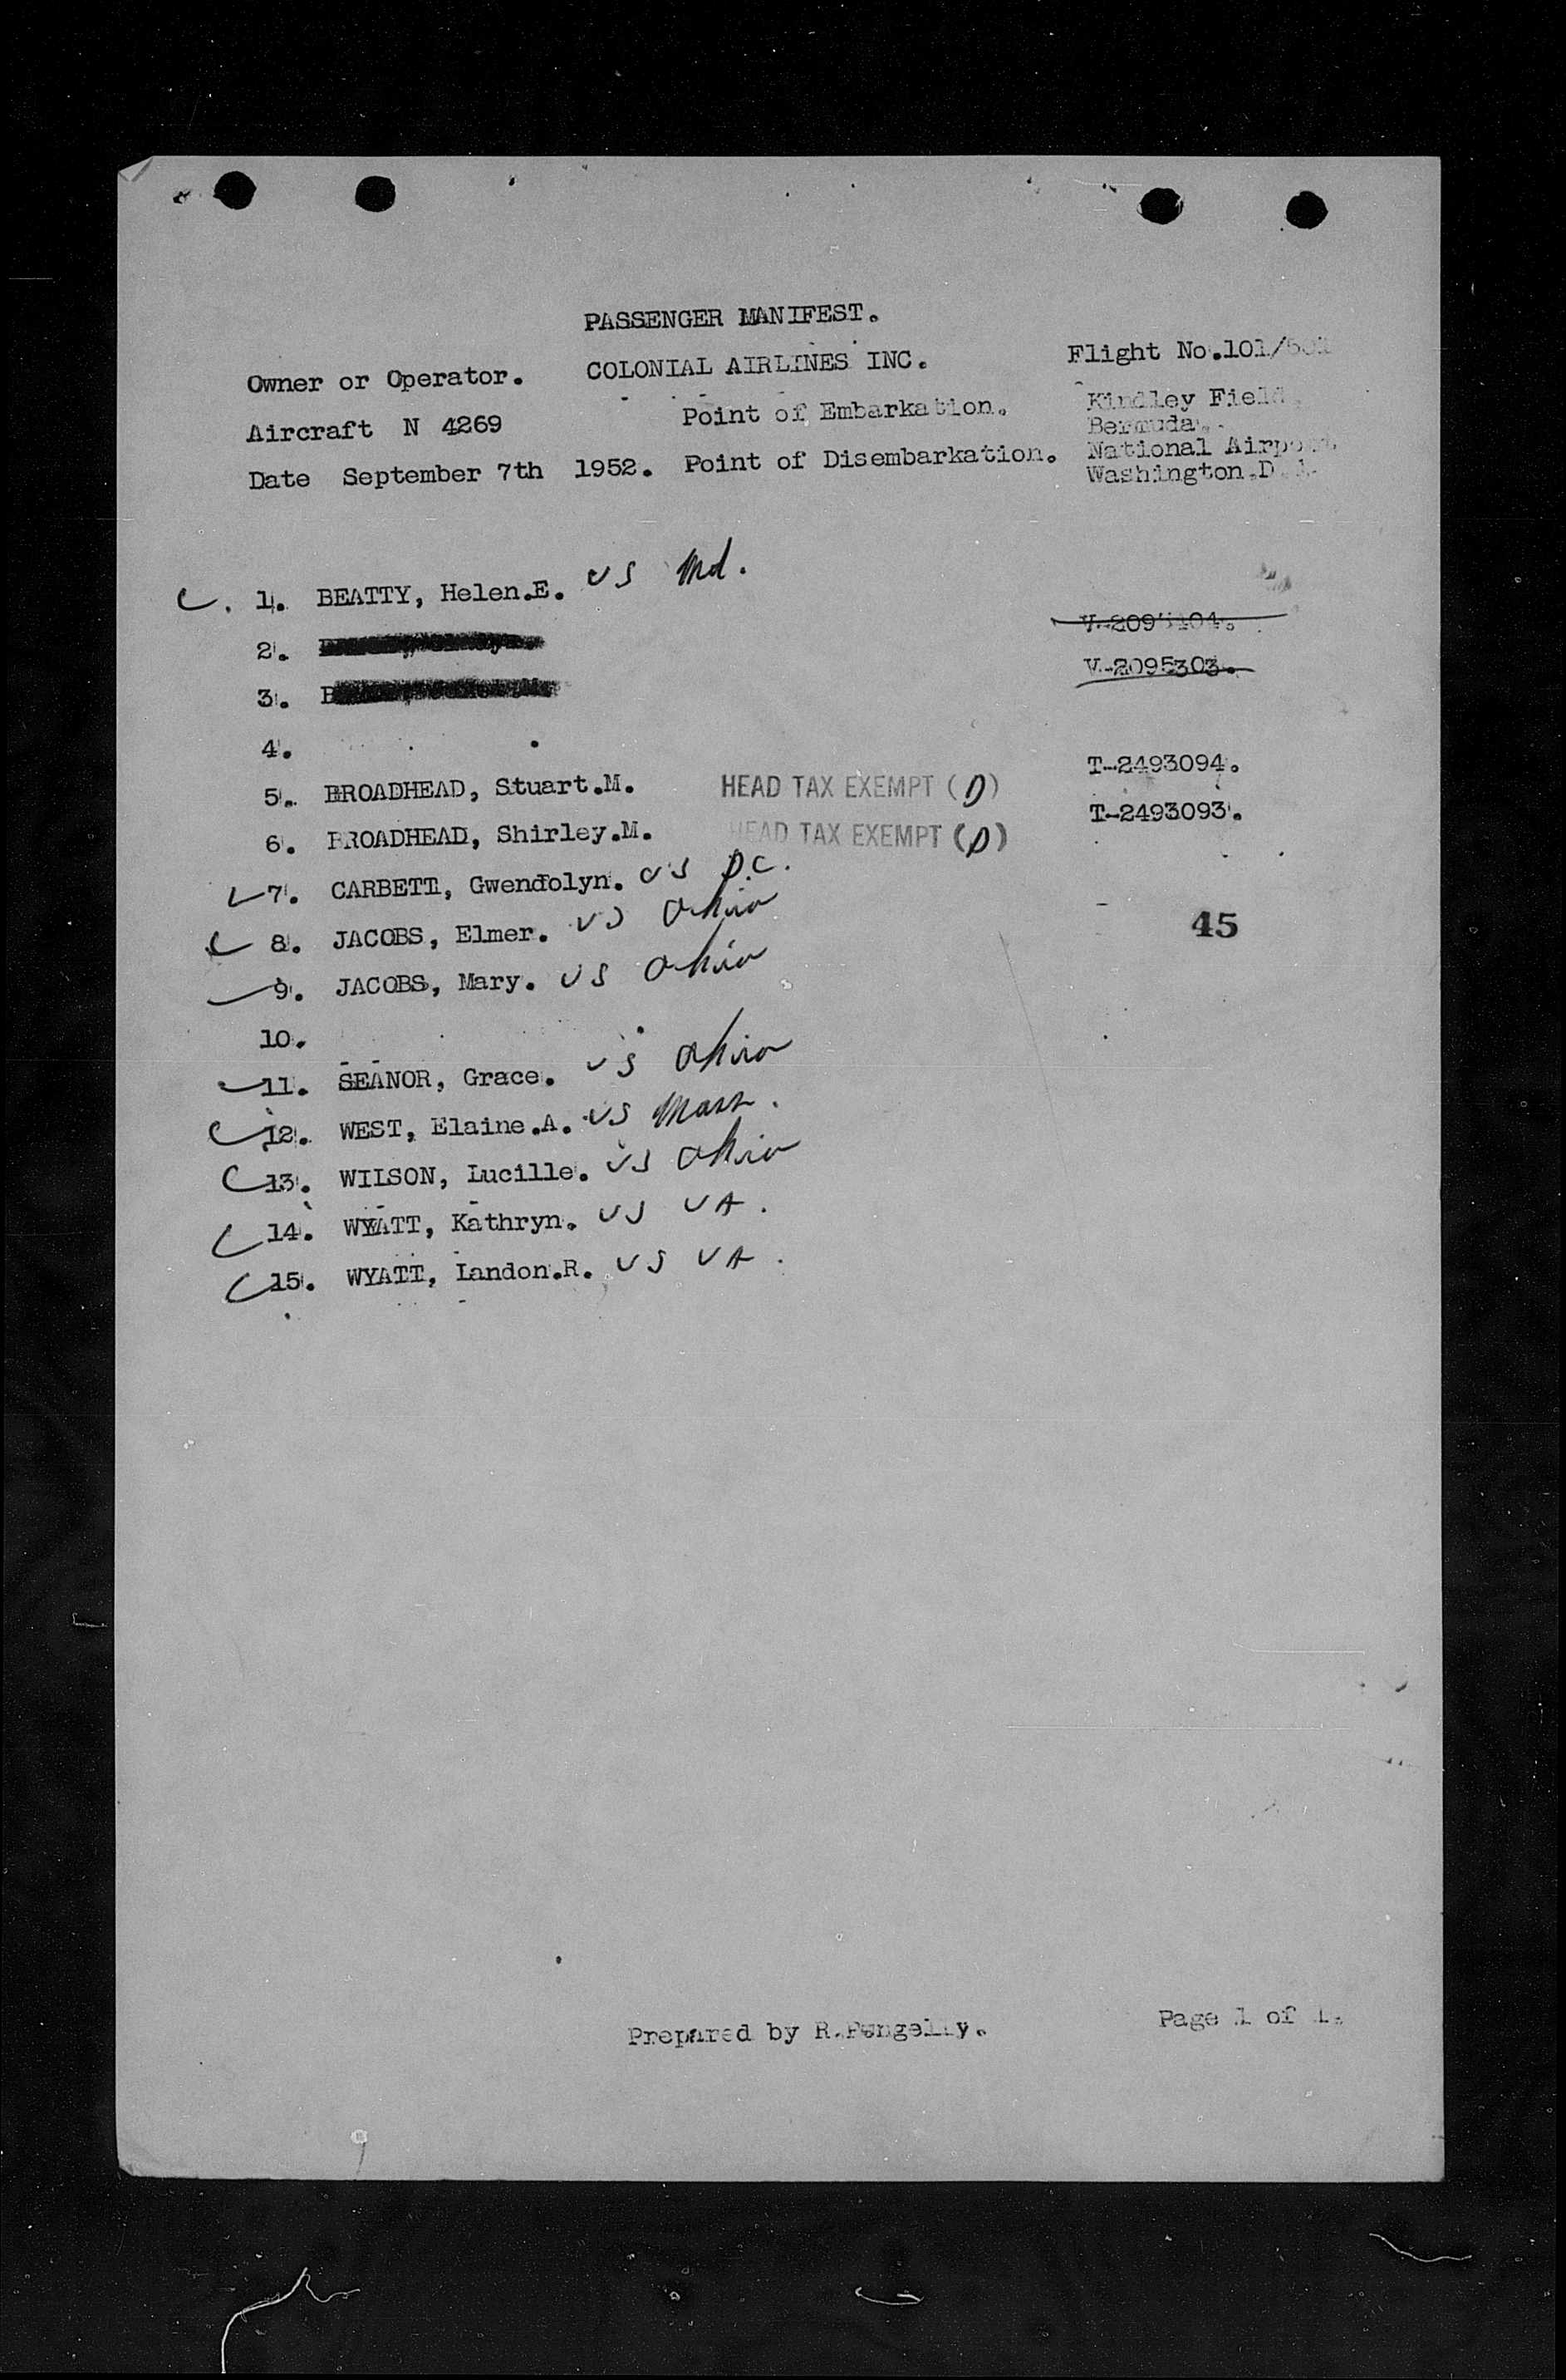 PASSENGER MANIFEST.
Owner or Operator. COLONIAL AIRLINES INC. Flight No.101/
Aircraft N 4269 Point of Embarkation. Kindley Field,
Bermuda.
Date September 7th 1952. Point of Disembarkation. National Airport
Washington.D.
1. BEATTY, Helen.E. US Md.
2.
3.
V-2095303.
4.
5. BROADHEAD, Stuart.M. HEAD TAX EXEMPT (D) T-2493094.
6. BROADHEAD, Shirley.M. HEAD TAX EXEMPT (D) T-2493093.
7. CARBETT, Gwendolyn. US D.C.
8. JACOBS, Elmer. US Ohio 45
9. JACOBS, Mary. US Ohio
10.
11. SEANOR, Grace. US Ohio
12. WEST, Elaine.A. US Mass.
13. WILSON, Lucille. US Ohio
14. WYATT, Kathryn. US VA.
15. WYATT, Landon.R. US VA.
Prepared by R.Pengelly. Page 1 of 1.